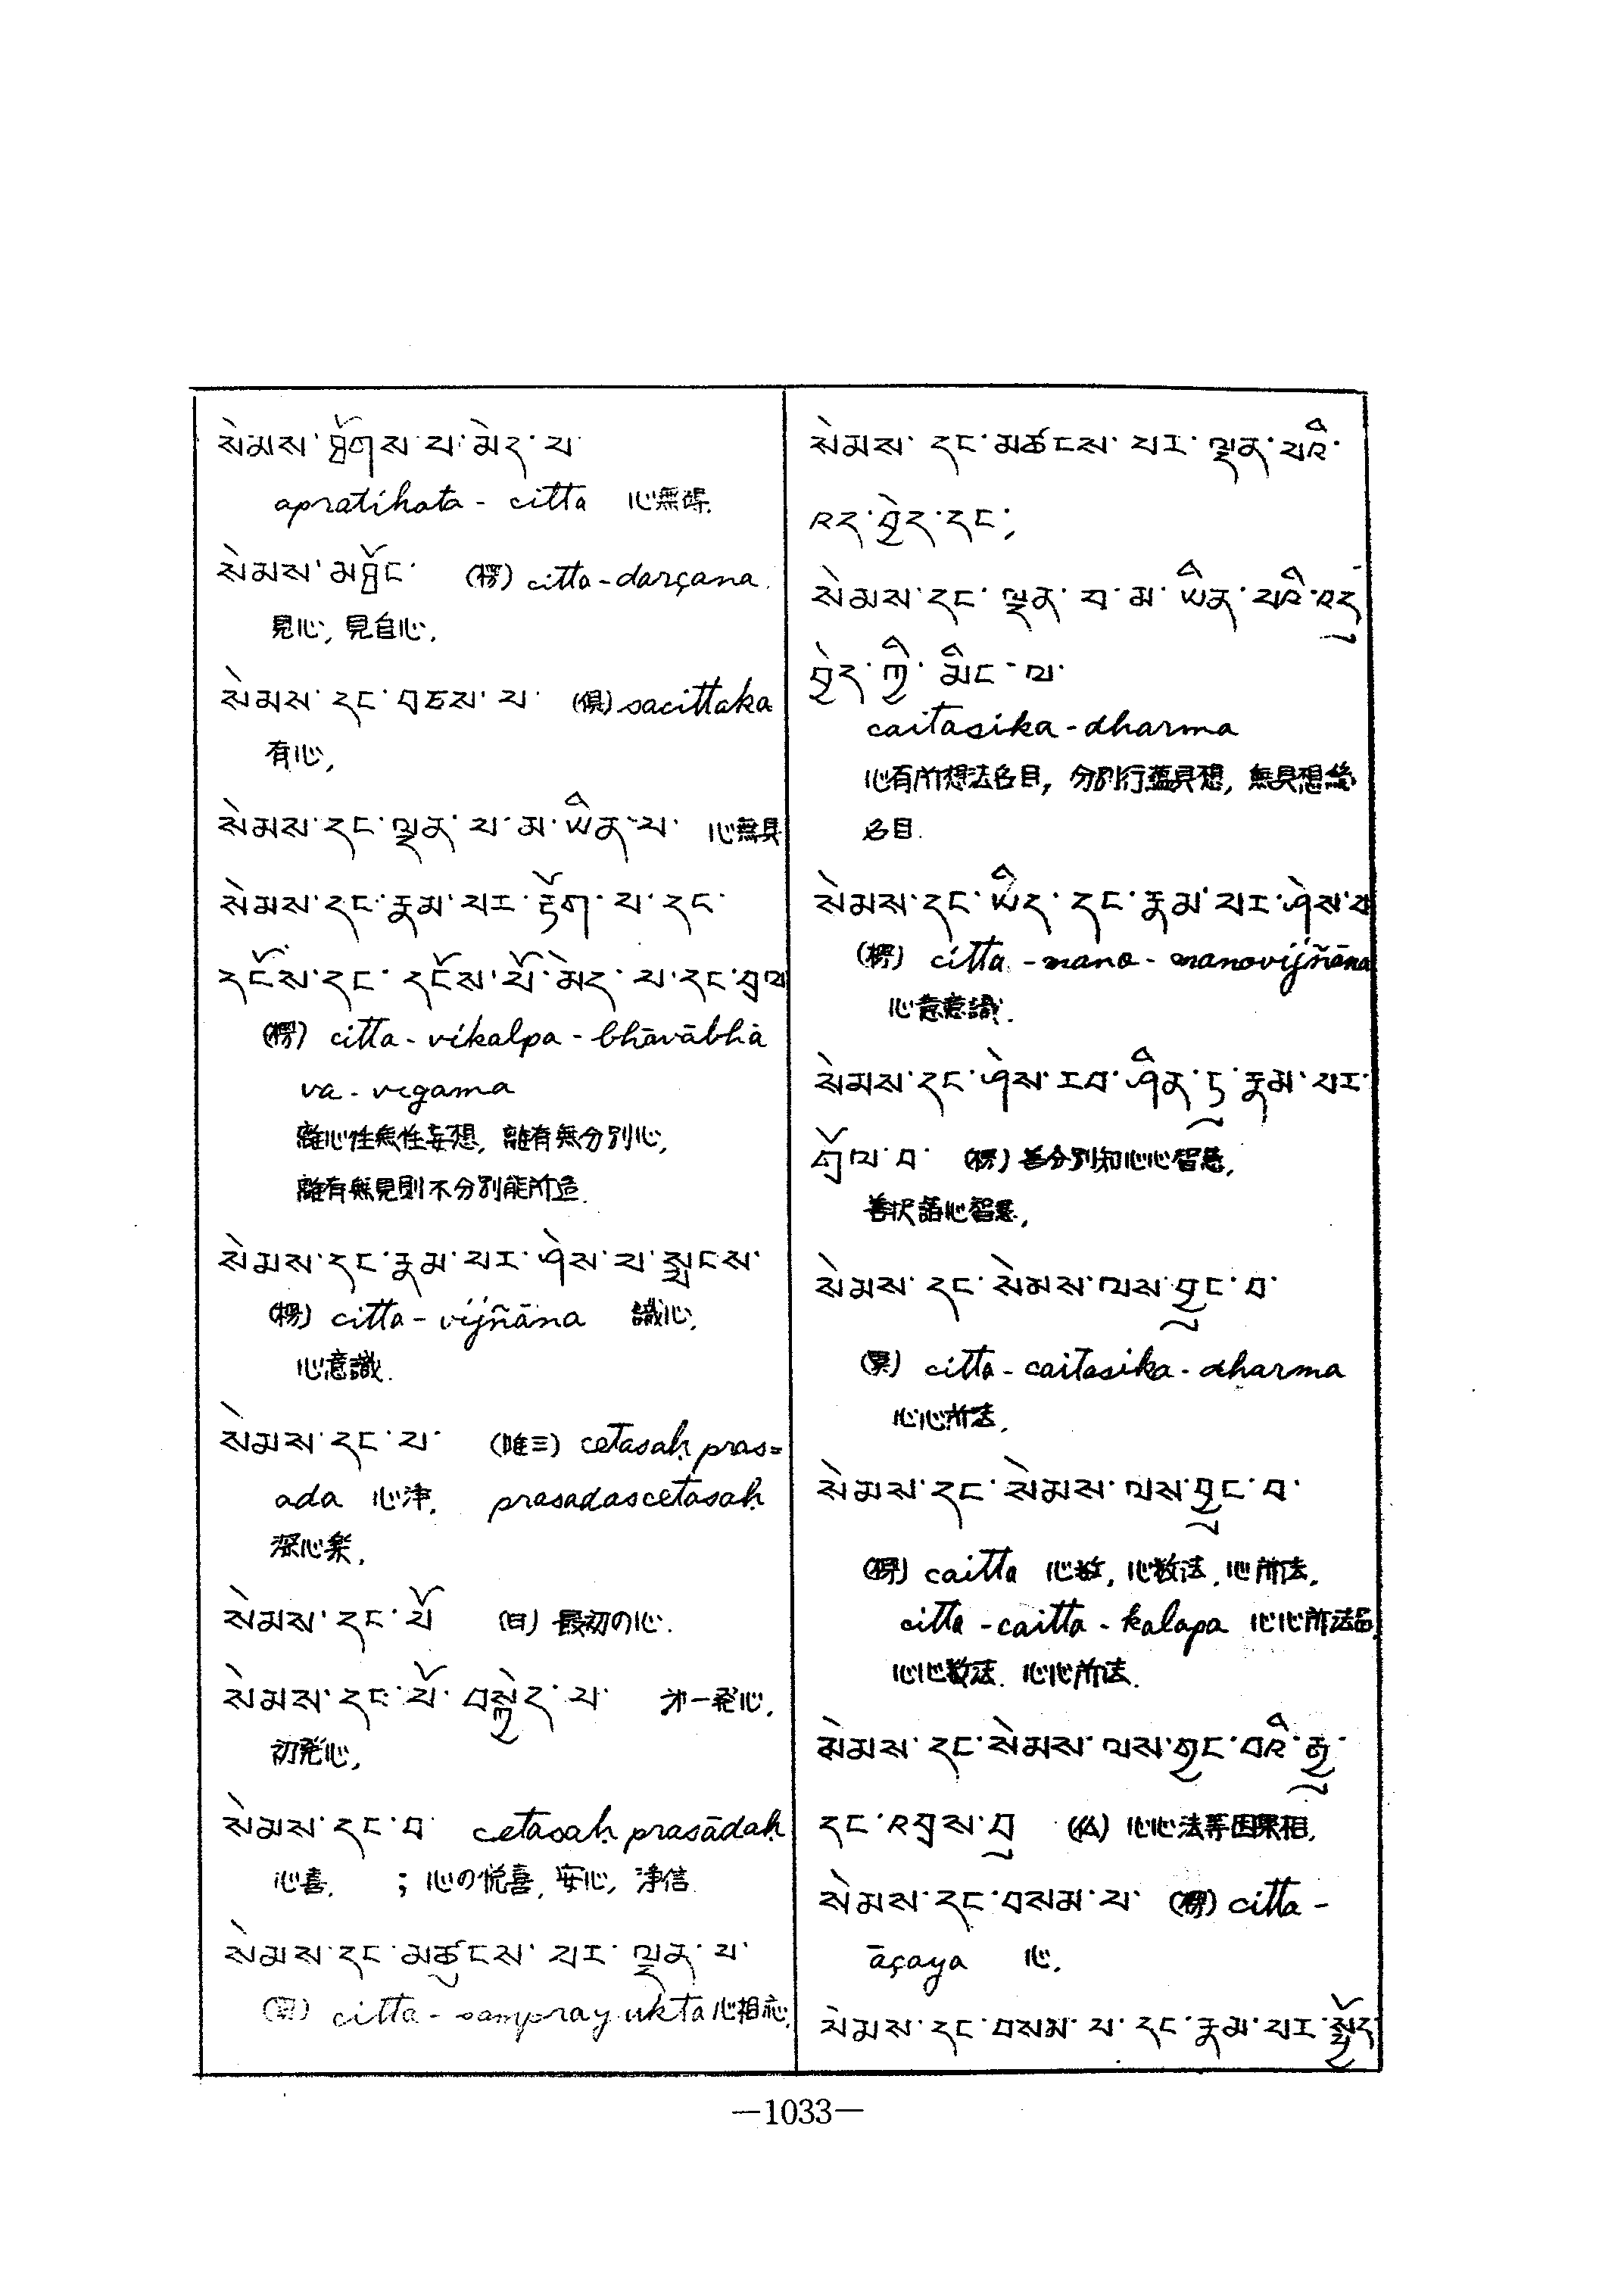 སེམས་ཐོགས་པ་མེད་པ་
apratihata - citta 心無碍.
སེམས་མཐོང་ (楞) citta-darçana.
見心, 見自心.
སེམས་དང་བཅས་པ་ (倶) sacittaka
有心,
སེམས་དང་ལྡན་པ་མ་ཡིན་པ་ 心無具
སེམས་དང་རྣམ་པར་རྟོག་པ་དང་
དངོས་དང་དངོས་པོ་མེད་པ་དང་བྲལ
(楞) citta - vikalpa - bhāvābhā
va - vigama
離心性無性妄想, 離有無分別心,
離有無見則不分別能所造.
སེམས་དང་རྣམ་པར་ཤེས་པ་སྤངས་
(楞) citta - vijñāna 識心.
心意識.
སེམས་དང་པ་ (唯三) cetasaḥ pras=
ada 心浄. prasadascetasaḥ
深心楽,
སེམས་དང་པོ (日) 最初の心.
སེམས་དང་པོ་བསྐྱེད་པ་ 才一発心.
初発心,
སེམས་དང་བ་ cetasaḥ prasādaḥ
心喜. ; 心の悦喜, 安心, 浄信.
སེམས་དང་མཚུངས་པར་ལྡན་པ་
citta - samprayukta 心相応.
སེམས་དང་མཚངས་པར་ལྡན་པའི་
འད་བྱེད་དང་,
སེམས་དང་ལྡན་པ་མ་ཡིན་པའི་འདུ
བྱེད་ཀྱི་མིང་ལ་
caitasika - dharma
心有所想法名目, 分別行蘊具想, 無具想
名目.
སེམས་དང་ཡིད་དང་རྣམ་པར་ཤེས་པ
(楞) citta - mano - manovijñāna
心意意識.
སེམས་དང་ཤེས་རབ་ཤིན་ཏུ་རྣམ་པར་
གྲོལ་བ་ (楞) 善分別知心心智慧,
善択諸心智慧,
སེམས་དང་སེམས་ལས་བྱུང་བ་
(累) citta - caitasika - dharma
心心所法.
སེམས་དང་སེམས་ལས་བྱུང་བ་
(楞) caitta 心数, 心数法, 心所法.
citta - caitta - kalapa 心心所法品,
心心数法. 心心所法.
སེམས་དང་སེམས་ལས་བྱང་བའི་རྒྱུ་
དང་འབྲས་བུ (仏) 心心法等因果相.
སེམས་དང་བསམ་པ་ (楞) citta -
āçaya 心.
སེམས་དང་བསམ་པ་དང་རྣམ་པར་སྦྱོད
—1033—